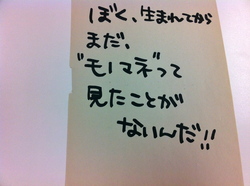 ぼく、生まれてから
まだ、
"モノマネ"って
見たことが
ないんだ!!